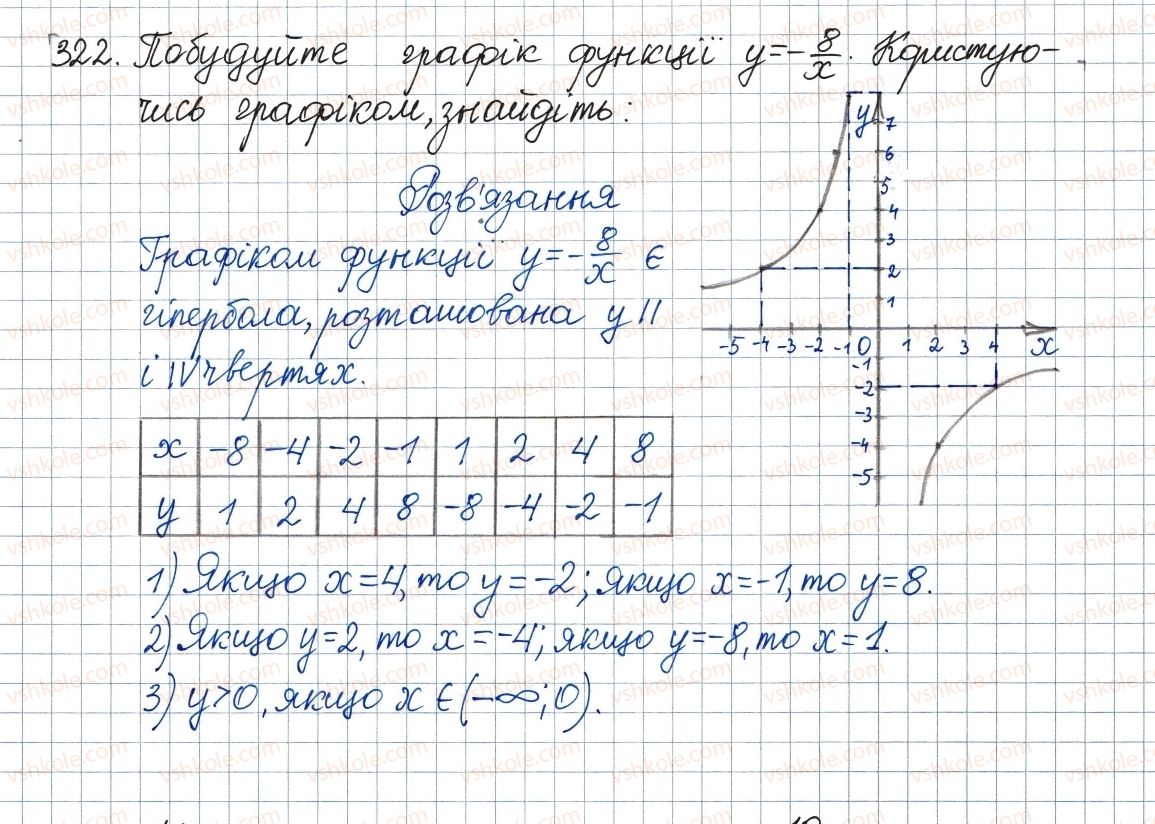 322. Побудуйте графік функції y=-8/x. Користую-
чись графіком, знайдіть:
Розв'язання
Графіком функції y=-8/x є
гіпербола, розташована у II
і IV чвертях.
x -8 -4 -2 -1 1 2 4 8
y 1 2 4 8 -8 -4 -2 -1
1) Якщо x=4, то y=-2; якщо x=-1, то y=8.
2) Якщо y=2, то x=-4; якщо y=-8, то x=1.
3) y>0, якщо x∈(-∞;0).
y
7
6
5
4
3
2
1
-5 -4 -3 -2 -1 0 1 2 3 4 x
-1
-2
-3
-4
-5
vshkole.com